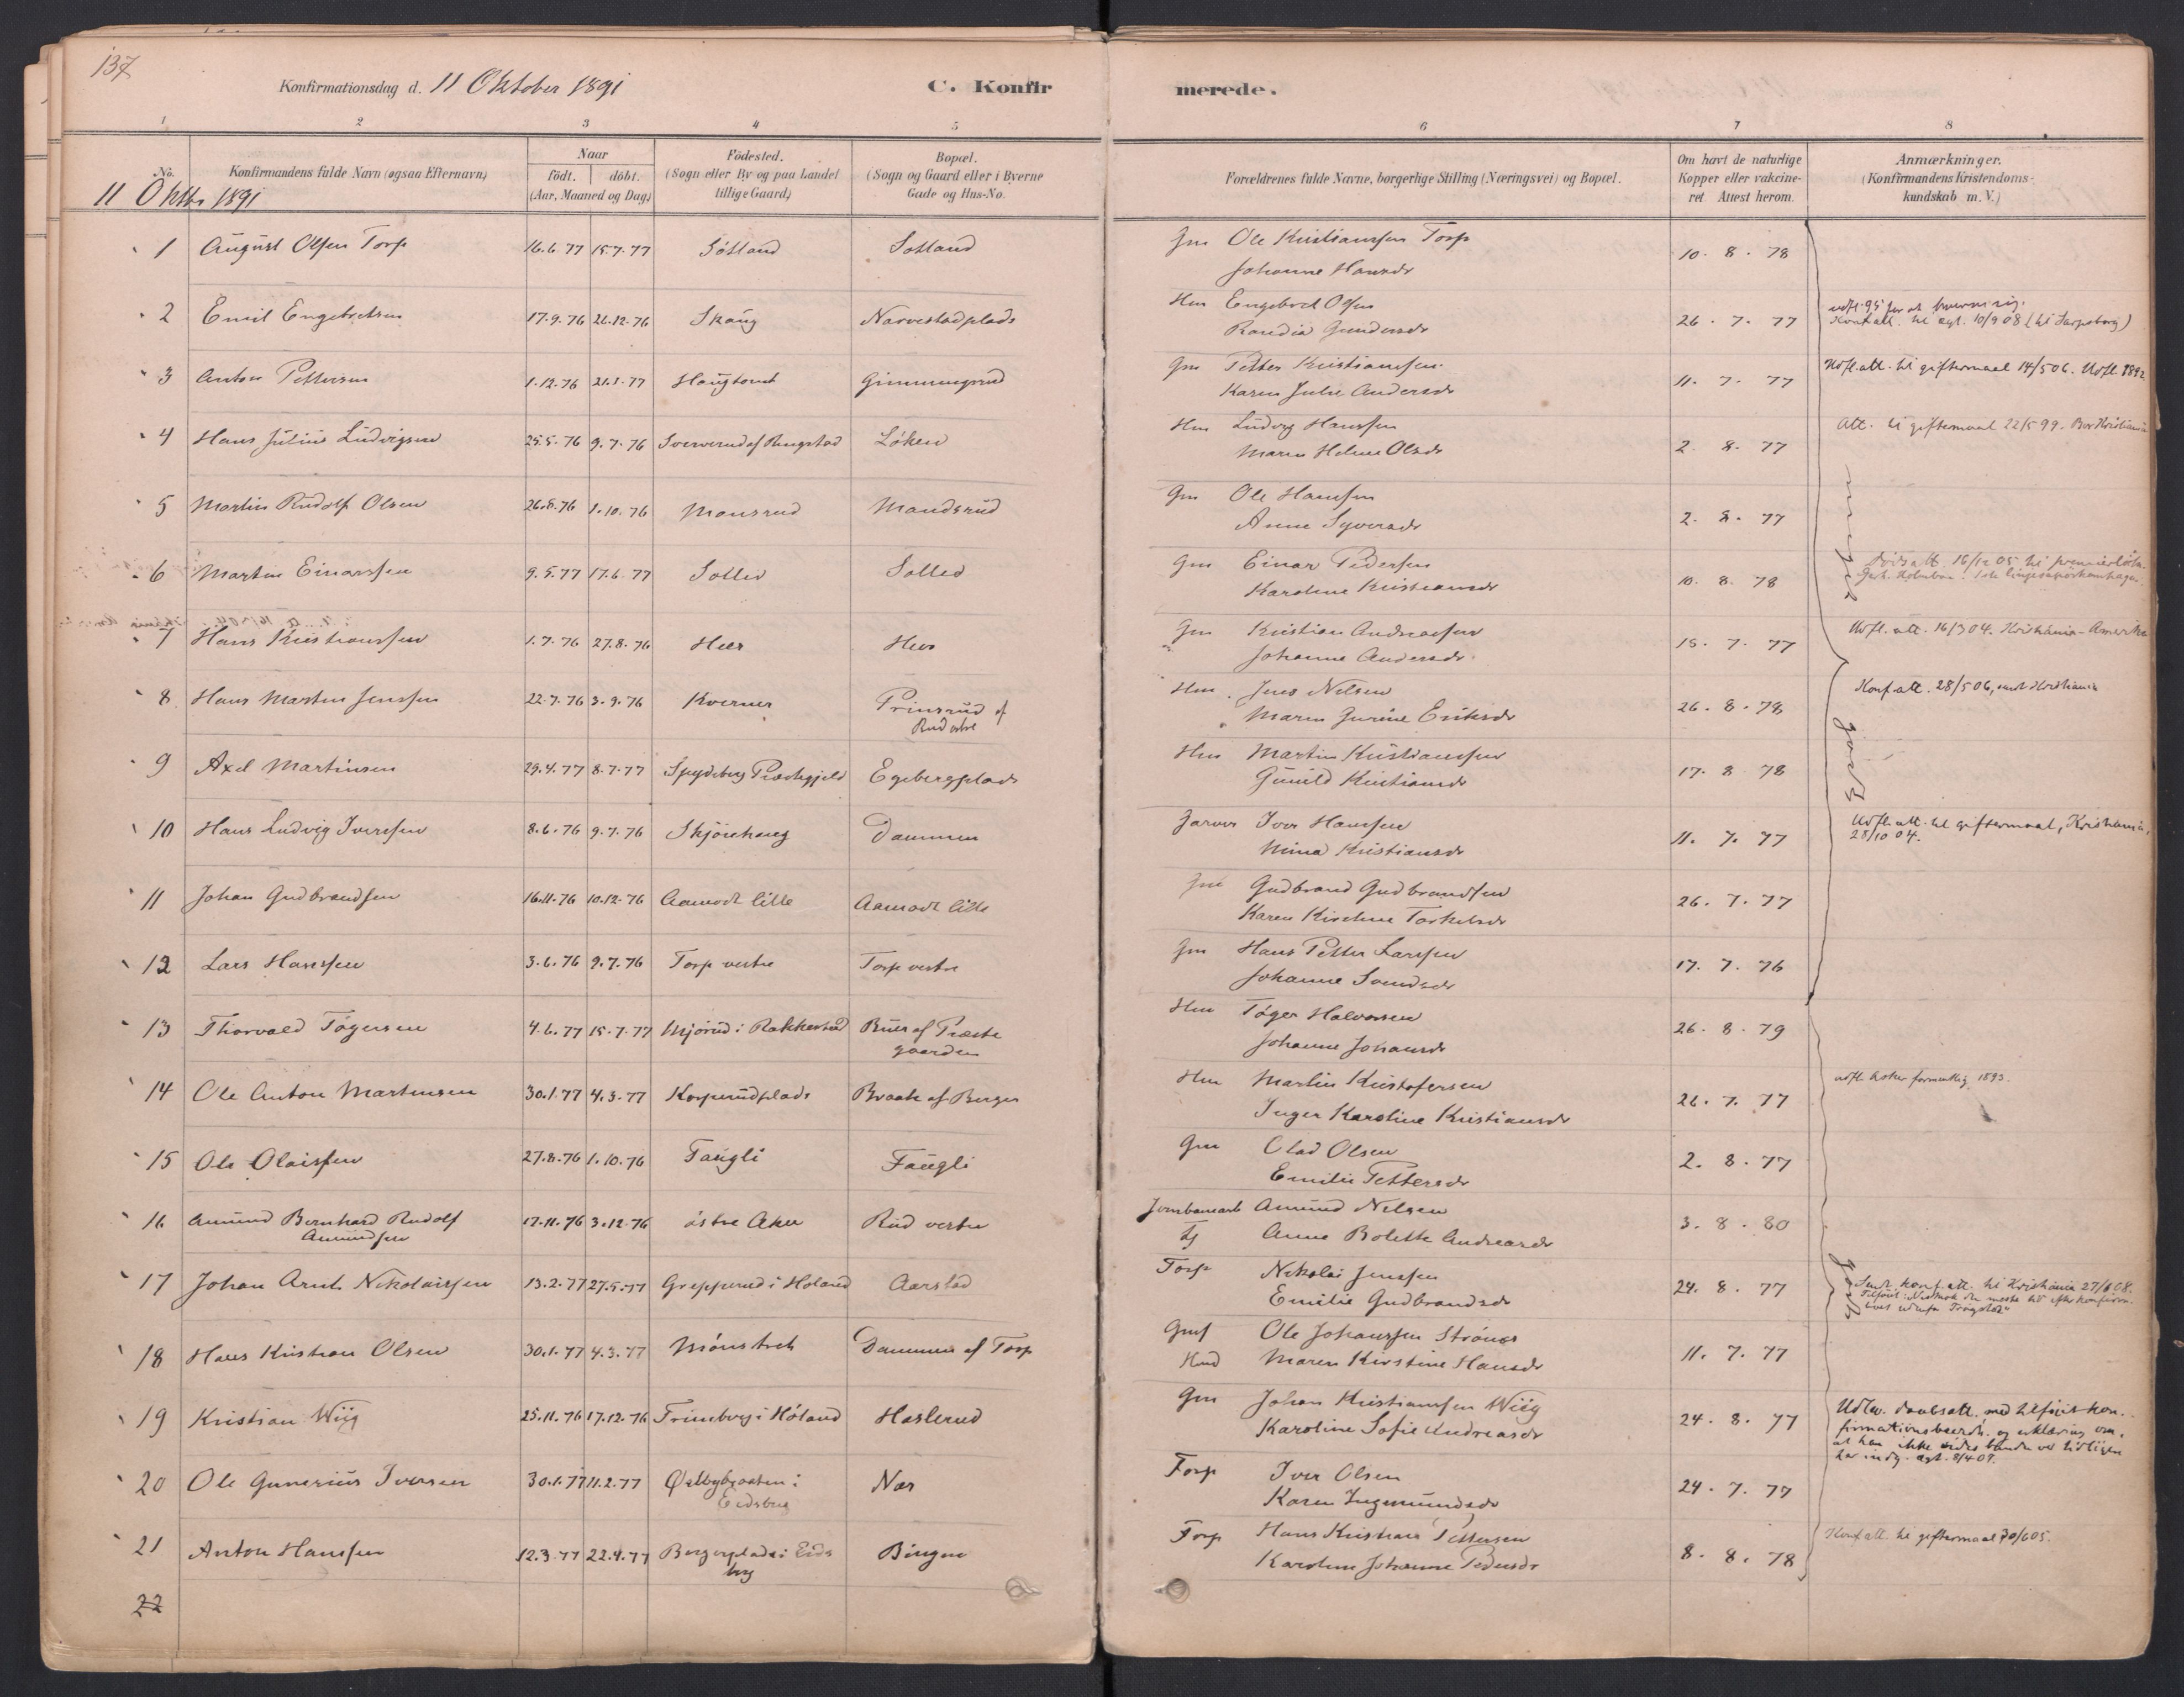 137
Konfirmationsdag d. 11 Oktober 1891
C. Konfirmerede.
1 2 3 4 5 6 7 8
No.
Konfirmandens fulde Navn (ogsaa Efternavn)
Naar
födt. döbt.
(Aar, Maaned og Dag)
Födested.
(Sogn eller By og paa Landet
tillige Gaard)
Bopæl.
(Sogn og Gaard eller i Byerne
Gade og Hus-No.
Forældrenes fulde Navne, borgerlige Stilling (Næringsvei) og Bopæl.
Om havt de naturlige
Kopper eller vakcine-
ret. Attest herom.
Anmærkninger.
(Konfirmandens Kristendoms-
kundskab m. V.)
11 Oktbr 1891
1 August Olsen Torp 16.6.77 15.7.77 Sötland Sotland Gm Ole Kristianssen Torp 10. 8. 78
Johanne Hansdr
2 Emil Engebretsen 17.9.76 26.12.76 Skaug Narvestadplads Hm Engebret Olsen 26. 7. 77
Randia Gundersdr
Konf att. til egt. 10/9 08 (til Sarpsborg)
3 Anton Pettersen 1.12.76 21.1.77 Haugtomt Gimmingsrud Gm Petter Kristianssen 11. 7. 77 Udfl.att. til giftermaal 14/5 06. Udfl. 1892
Karen Julie Andersdr
4 Hans Julius Ludvigsen 25.5.76 9.7.76 Sververud af Ringstad Løken Hm Ludvig Hanssen 2. 8. 77 Att. til giftermaal 22/5 99. Bor Kristiania
Maren Helene Olsdr
5 Martin Rudolf Olsen 26.8.76 1.10.76 Monsrud Mandsrud Gm Ole Hanssen 2. 8. 77
Anne Syversdr
meget
6 Martin Einarssen 9.5.77 17.6.77 Solled Solled Gm Einar Pedersen 10. 8. 78
Karoline Kristiansdr
7 Hans Kristianssen 1.7.76 27.8.76 Heer Heer Gm Kristian Andreassen 15. 7. 77 Udfl. att. 16/3 04. Kristiania - Amerika
Johanne Andersdr
8 Hans Martin Jenssen 22.7.76 3.9.76 Kverner Prinsrud af
Rud østre Hm Jens Nilsen 26. 8. 78 Konf att. 28/5 06, sendt Kristiania
Maren Gurine Eriksdr
godt
9 Axel Martinsen 29.4.77 8.7.77 Spydeberg Præstegjeld Egebergplads Hm Martin Kristianssen 17. 8 78
Gunild Kristiansdr
10 Hans Ludvig Iverssen 8.6.76 9.7.76 Skjönhaug Dammen Garver Iver Hanssen 11. 7. 77 Udfl. att. til giftermaal, Kristiania,
28/10 04.
Mina Kristiansdr
11 Johan Gudbrandsen 16.11.76 10.12.76 Aamodt lille Aamodt lille Gm Gudbrand Gudbrandsen 26. 7. 77
Karen Kirstine Torkelsdr
12 Lars Hanssen 3.6.76 9.7.76 Torp vestre Torp vestre Gm Hans Petter Larssen 17. 7. 76
Johanne Svendsdr
13 Thorvald Tögersen 4.6.77 15.7.77 Mjörud i Rakkestad Buer af Præste
gaarden Hm Töger Halvorsen 26. 8. 79
Johanne Johansdr
14 Ole Anton Martinsen 30.1.77 4.3.77 Korperudplads Braate af Berger Hm Martin Kristofersen 26. 7. 77
Inger Karoline Kristiansdr
15 Ole Olaissen 27.8.76 1.10.76 Faugli Faugli Gm Olad Olsen 2. 8. 77
Emilie Pettersdr
16 Amund Bernhard Rudolf
Amundsen 17.11.76 3.12.76 östre Aker Rud vestre Jernbanearb Amund Nelsen 3. 8. 80
Anne Bolette Andreasdr
17 Johan Arnt Nikolaissen 13.2.77 27.5.77 Grepperud i Höland Aarstad Torp Nikolai Jenssen 24. 8. 77
Emilie Gudbrandsdr
godt
Sendt konf. att. til Kristiania 27/1 08.
18 Hans Kristian Olsen 30.1.77 4.3.77 Mönstret Dammen af Torp Gmf Ole Johanssen Strönes 11. 7. 77
Maren Kirstine Hansdr
19 Kristian Wiig 25.11.76 17.12.76 Trimborg i Höland Haslerud Gm Johan Kristianssen Wiig 24. 8. 77
Karoline Sofie Andreasdr
Udlev. daabsatt. med tilföiet kon-
firmationsbevidn. og erklæring om,
at han ikke
har indg. egt. 8/4 09.
20 Ole Gunerius Iversen 30.1.77 11.2.77 Østbybraaten i
Eidsberg Nes Torp Iver Olsen 24. 7. 77
Karen Ingemundsdr
21 Anton Hanssen 12.3.77 22.4.77 Bergerplads i Eids
berg Bingen Torp Hans Kristian Pettersen 8. 8. 78 Konf att. til giftermaal 20/6 05.
Karoline Johanne Pedersdr
22